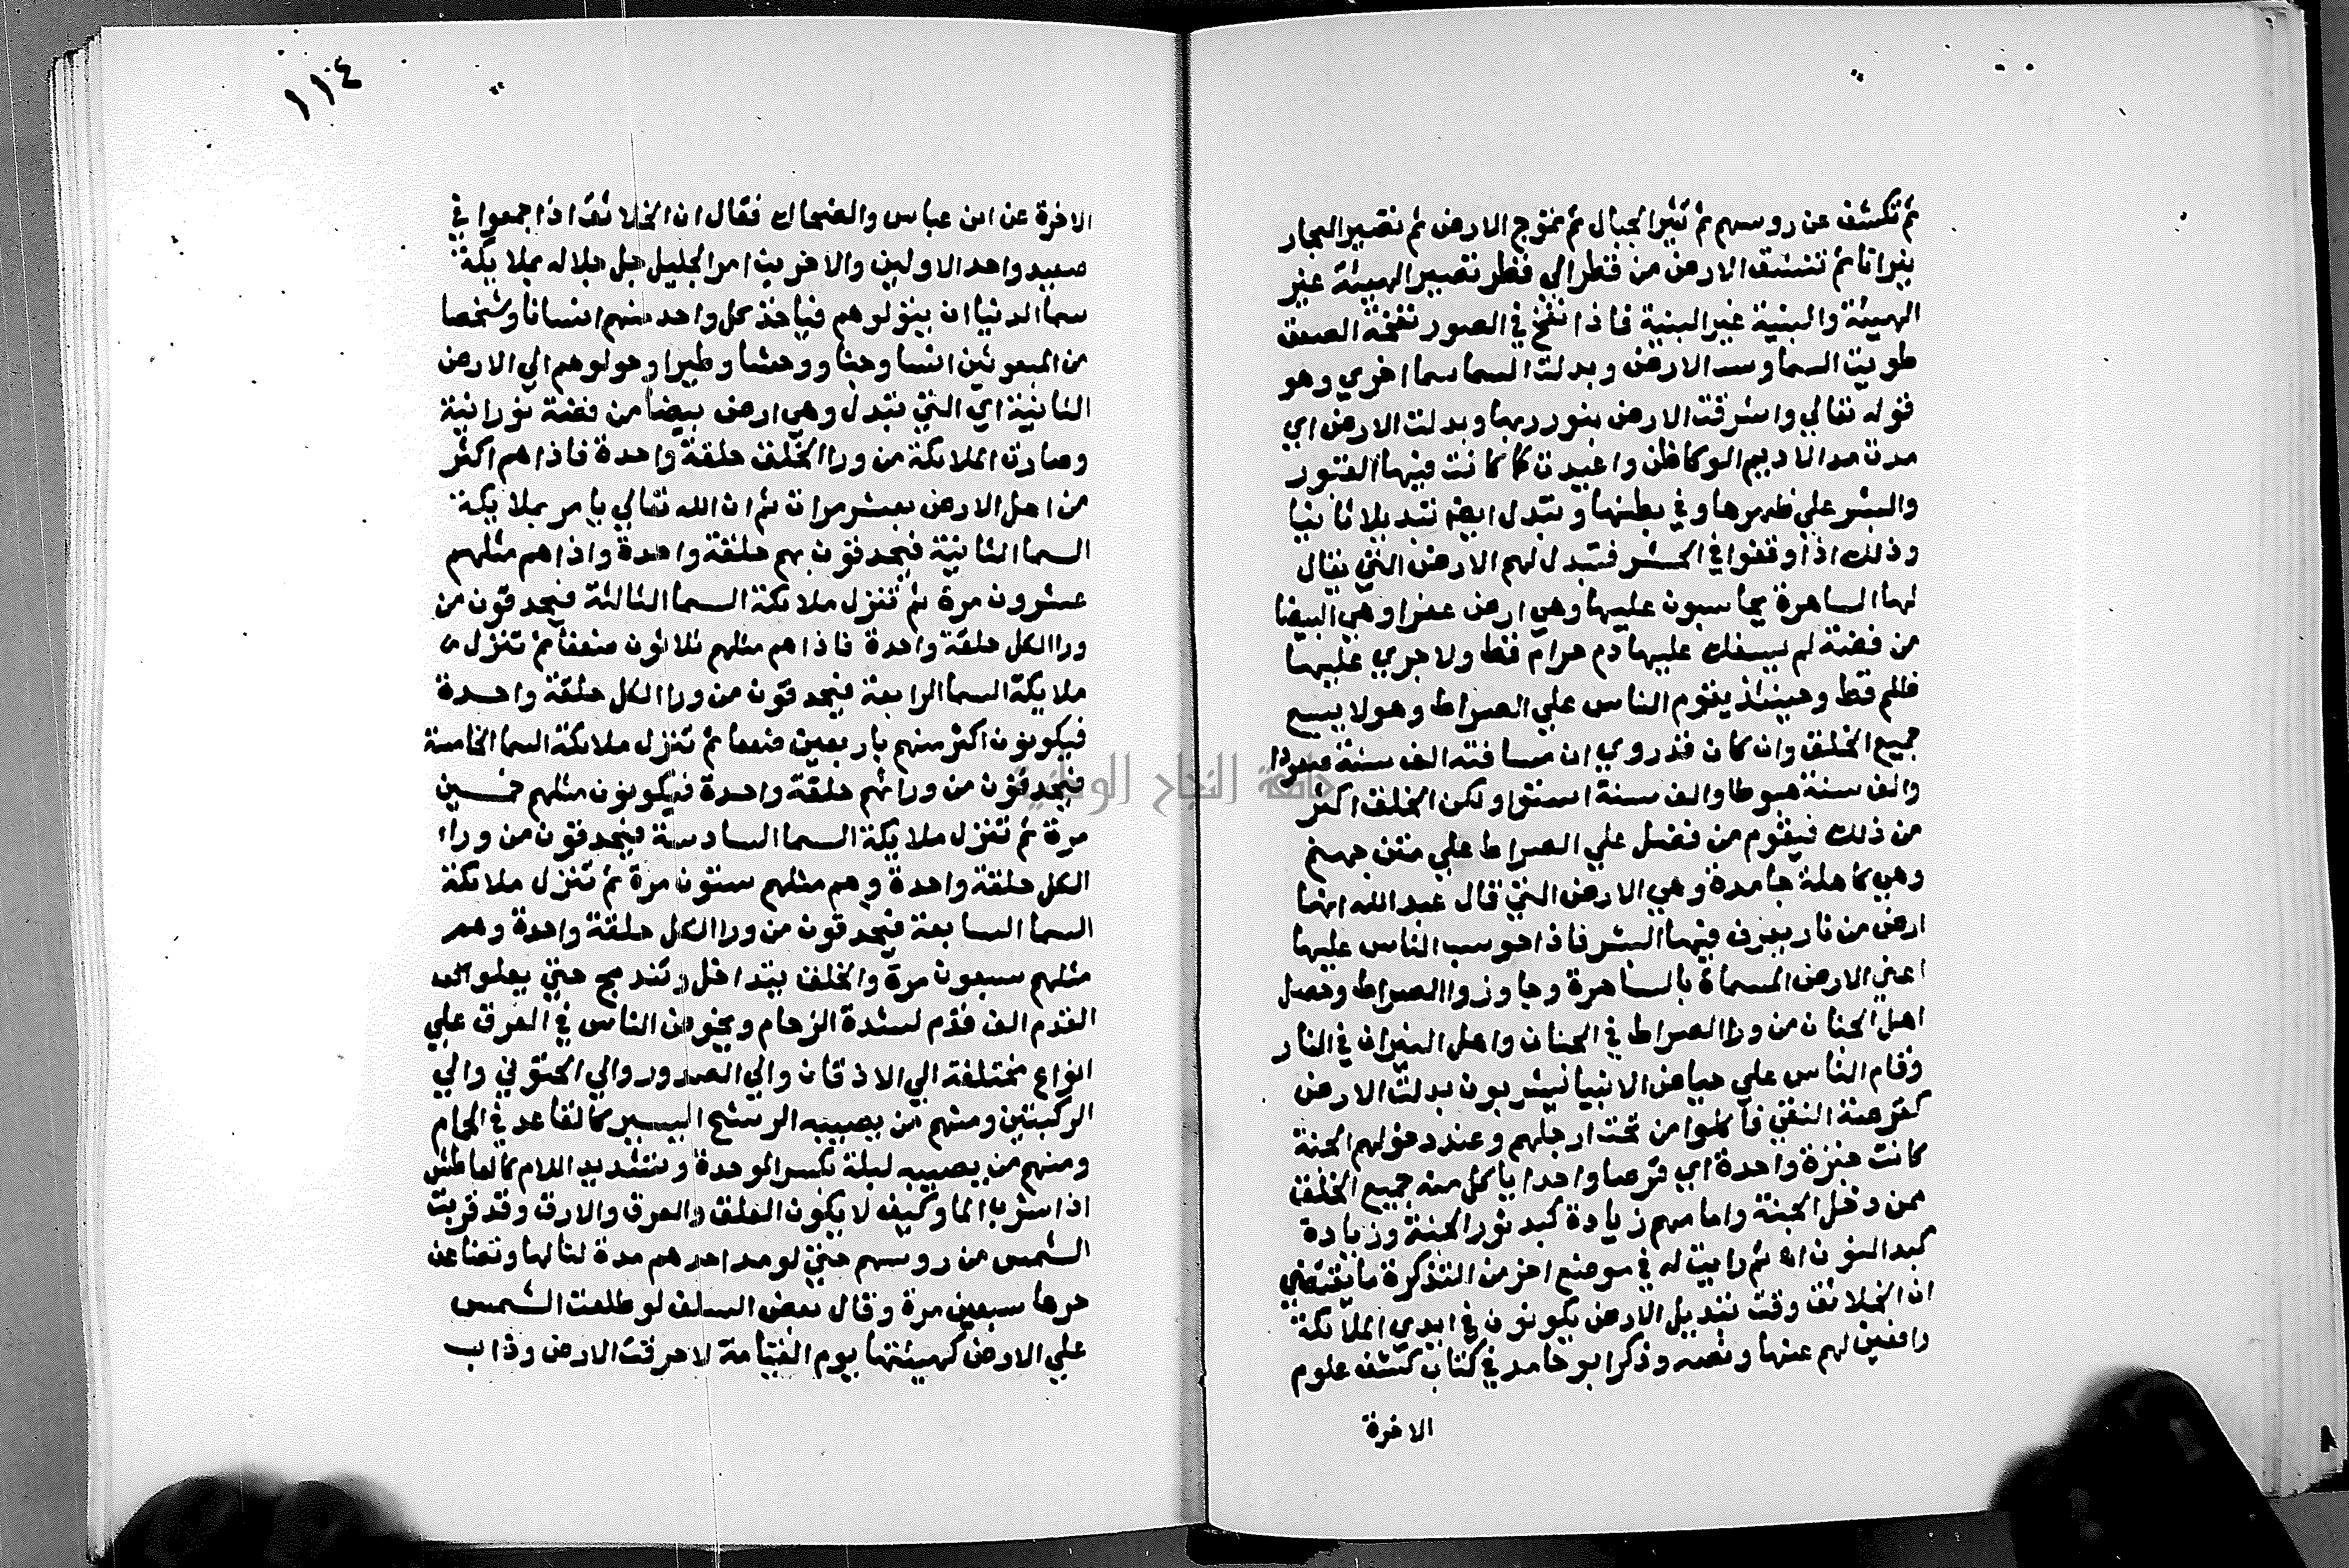 ثم تكشف عن روسهم ثم تثير الجبال ثم تموج الارض ثم تصير البحار
نيرانا ثم تنشق الارض من قطر الي قطر تصير الهيئة غير
الهيئة والبنية غير البنية فاذا نفخ في الصور نفخة الصعق
طويت السماوات الارض وبدلت السما سما اخري وهو
قوله تعالي واشرقت الارض بنور ربها وبدلت الارض اي
مدت مد الاديم العكاظي واعيدت كما كانت فيها القبور
والبشر علي ظهرها وفي بطنها وتبدل ايضا تبديلا ثانيا
وذلك اذا وقفوا في المحشر فتبدل لهم الارض التي يقال
لها الساهرة يحاسبون عليها وهي ارض عفرا وهي البيضا
من فضة لم يسفك عليها دم حرام قط ولا جري عليها
ظلم قط وحينئذ يقوم الناس علي الصراط وهو لا يسع
جميع الخلق وان كان قد روي ان مسافته الف سنة صعودا
والف سنة هبوطا والف سنة استوا ولكن الخلق اكثر
من ذلك فيقوم من فضل علي الصراط علي متن جهنم
وهي كاهلة جامدة وهي الارض التي قال عبد الله انها
ارض من نار يعرق فيها البشر فاذا حوسب الناس عليها
اعني الارض المسماة بالساهرة وجاوزوا الصراط وحصل
اهل الجنان من ورا الصراط في الجنان واهل النيران في النار
وقام الناس علي حياض الانبيا يشربون بدلت الارض
كقرصة النقي فاكلوا من تحت ارجلهم وعند دخولهم الجنة
كانت خبزة واحدة اي قرصا واحدا ياكل منه جميع الخلق
ممن دخل الجنة وادامهم زيادة كبد ثور الجنة وزيادة
كبد النون اه ثم رايت له في موضع اخر من التذكرة ما يقتضي
ان الخلائق وقت تبديل الارض يكونون في ايدي الملائكة
رافعين لهم عنها ونصه وذكر ابو حامد في كتاب كشف علوم
الاخرة
١١٤
الاخرة عن ابن عباس والضحاك فقال ان الخلائق اذا جمعوا في
صعيد واحد الاولين والاخرين امر الجليل جل جلاله بملايكة
سما الدنيا ان يتولوهم فياخذ كل واحد منهم انسانا وشخصا
من المبعوثين انسا وجنا ووحشا وطيرا وحولوهم الي الارض
الثانية اي التي تبدل وهي ارض بيضا من فضة نورانية
وصارت الملائكة من ورا الخلق حلقة واحدة فاذا هم اكثر
من اهل الارض بعشر مرات ثم ان الله تعالي يامر بملايكة
السما الثانية فيحدقون بهم حلقة واحدة واذا هم مثلهم
عشرون مرة ثم تنزل ملائكة السما الثالثة فيحدقون من
ورا الكل حلقة واحدة فاذا هم مثلهم ثلاثون ضعفا ثم تنزل
ملايكة السما الرابعة فيحدقون من ورا الكل حلقة واحدة
فيكونون اكثر منهم باربعين ضعفا ثم تنزل ملائكة السما الخامسة
فيحدقون من ورائهم حلقة واحدة فيكونون مثلهم خمسين
مرة ثم تنزل ملايكة السما السادسة فيحدقون من وراء
الكل حلقة واحدة وهم مثلهم ستون مرة ثم تنزل ملائكة
السما السابعة فيحدقون من ورا الكل حلقة واحدة وهم
مثلهم سبعون مرة والخلق يتداخل وتندمج حتي يعلو
القدم الف قدم لشدة الزحام ويخوض الناس في العرق علي
انواع مختلفة الي الاذقان والي الصدور والي الحقوي والي
الركبتين ومنهم من يصيبه الرشح اليسير كالقاعد في الحمام
ومنهم من يصيبه لبلة بكسر الموحدة وتشديد اللام كالعاطش
اذا شرب الما وكيف لا يكون القلق والعرق والارق وقد قربت
الشمس من روسهم حتي لو مد احدهم مدة لنالها وتضاعف
حرها سبعين مرة وقال بعض السلف لو طلعت الشمس
علي الارض كهيئتها يوم القيامة لاحرقت الارض وذاب
جامعة النجاح الوطنية